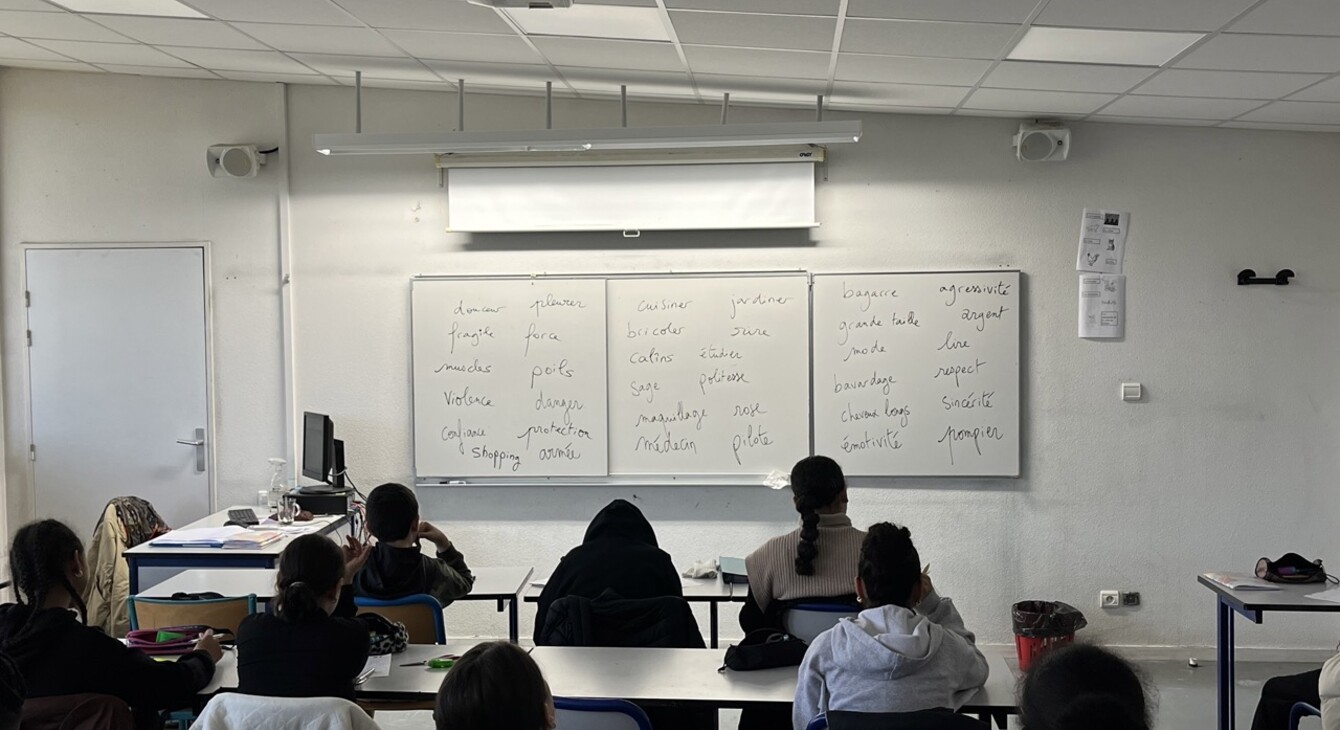 douceur pleurer
fragile force
muscles poils
violence danger
confiance protection
shopping armée
cuisiner jardiner
bricoler
calins étudier
sage politesse
maquillage rose
médecin pilote
bagarre agressivité
grande taille argent
mode lire
bavardage respect
cheveux longs sincérité
émotivité pompier